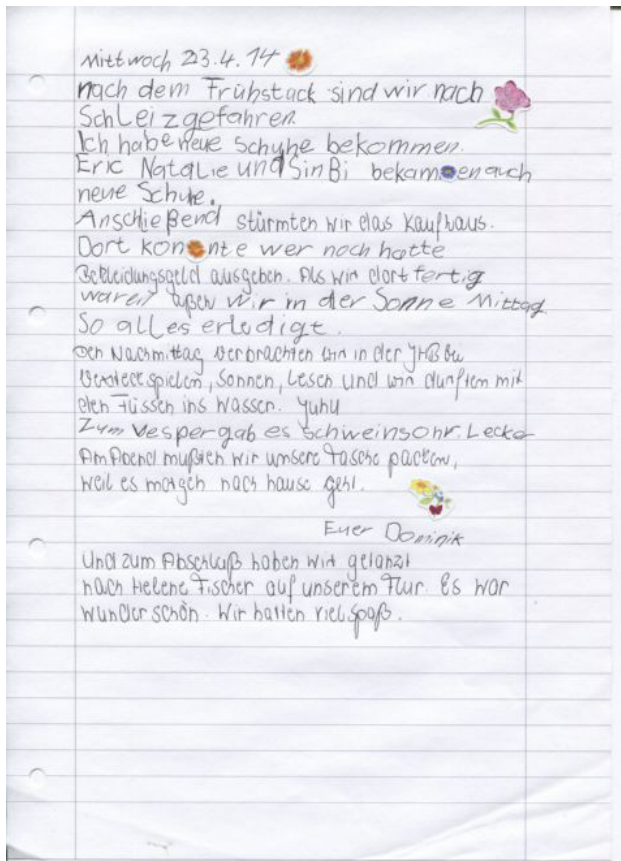 Mittwoch 23.4.14
nach dem Frühstack sind wir nach
Schleiz gefahren.
Ich habe neue schuhe bekommen.
Eric Natalie und SinBi bekamen auch
neue Schuhe.
Anschießend stürmten wir das Kaufhaus.
Dort konnte wer noch hatte
Bekleidungsgeld ausgeben. Als wir dort fertig
waren aßen wir in der Sonne Mittag.
So alles erledigt.
Den Nachmittag verbrachten wir in der
Versteck spielen, Sonnen, Lesen und wir durften mit
den Füssen ins Wasser. Yuhu
Zum Vesper gab es Schweinsohr. Lecker
Am Abend mußten wir unsere Tasche packen,
weil es morgen nach hause geht.
Euer Dominik
Und zum Abschluß haben wir getanzt
nach Helene Fischer auf unserem Flur. Es war
wunder schön. Wir hatten viel spaß.